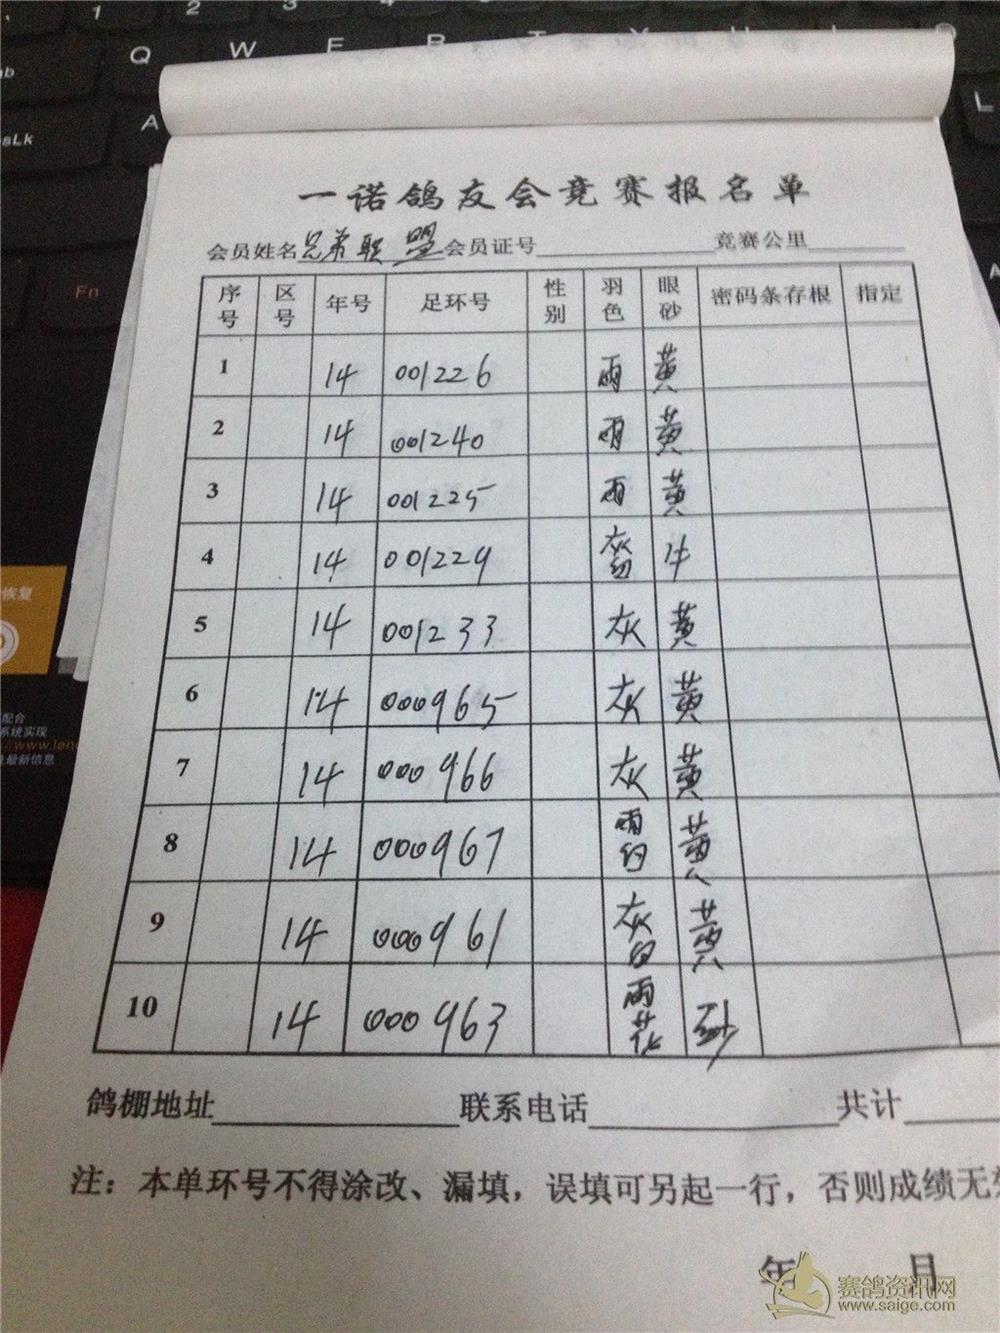 1 2 3 4
Q W E R T Y U I O
A
L
Fn
恢复
配合
系统实现
最新信息
一诺鸽友会竞赛报名单
会员姓名兄弟联盟会员证号 竞赛公里
序号 区号 年号 足环号 性别 羽色 眼砂 密码条存根 指定
1 14 001226 雨 黄
2 14 001240 雨 黄
3 14 001225 雨 黄
4 14 001229 灰白 牛
5 14 001233 灰 黄
6 14 000965 灰 黄
7 14 000966 灰 黄
8 14 000967 雨白 黄
9 14 000961 灰白 黄
10 14 000963 雨花 砂
鸽棚地址 联系电话 共计
注：本单环号不得涂改、漏填，误填可另起一行，否则成绩无效
年 月
赛鸽资讯网
www.saige.com